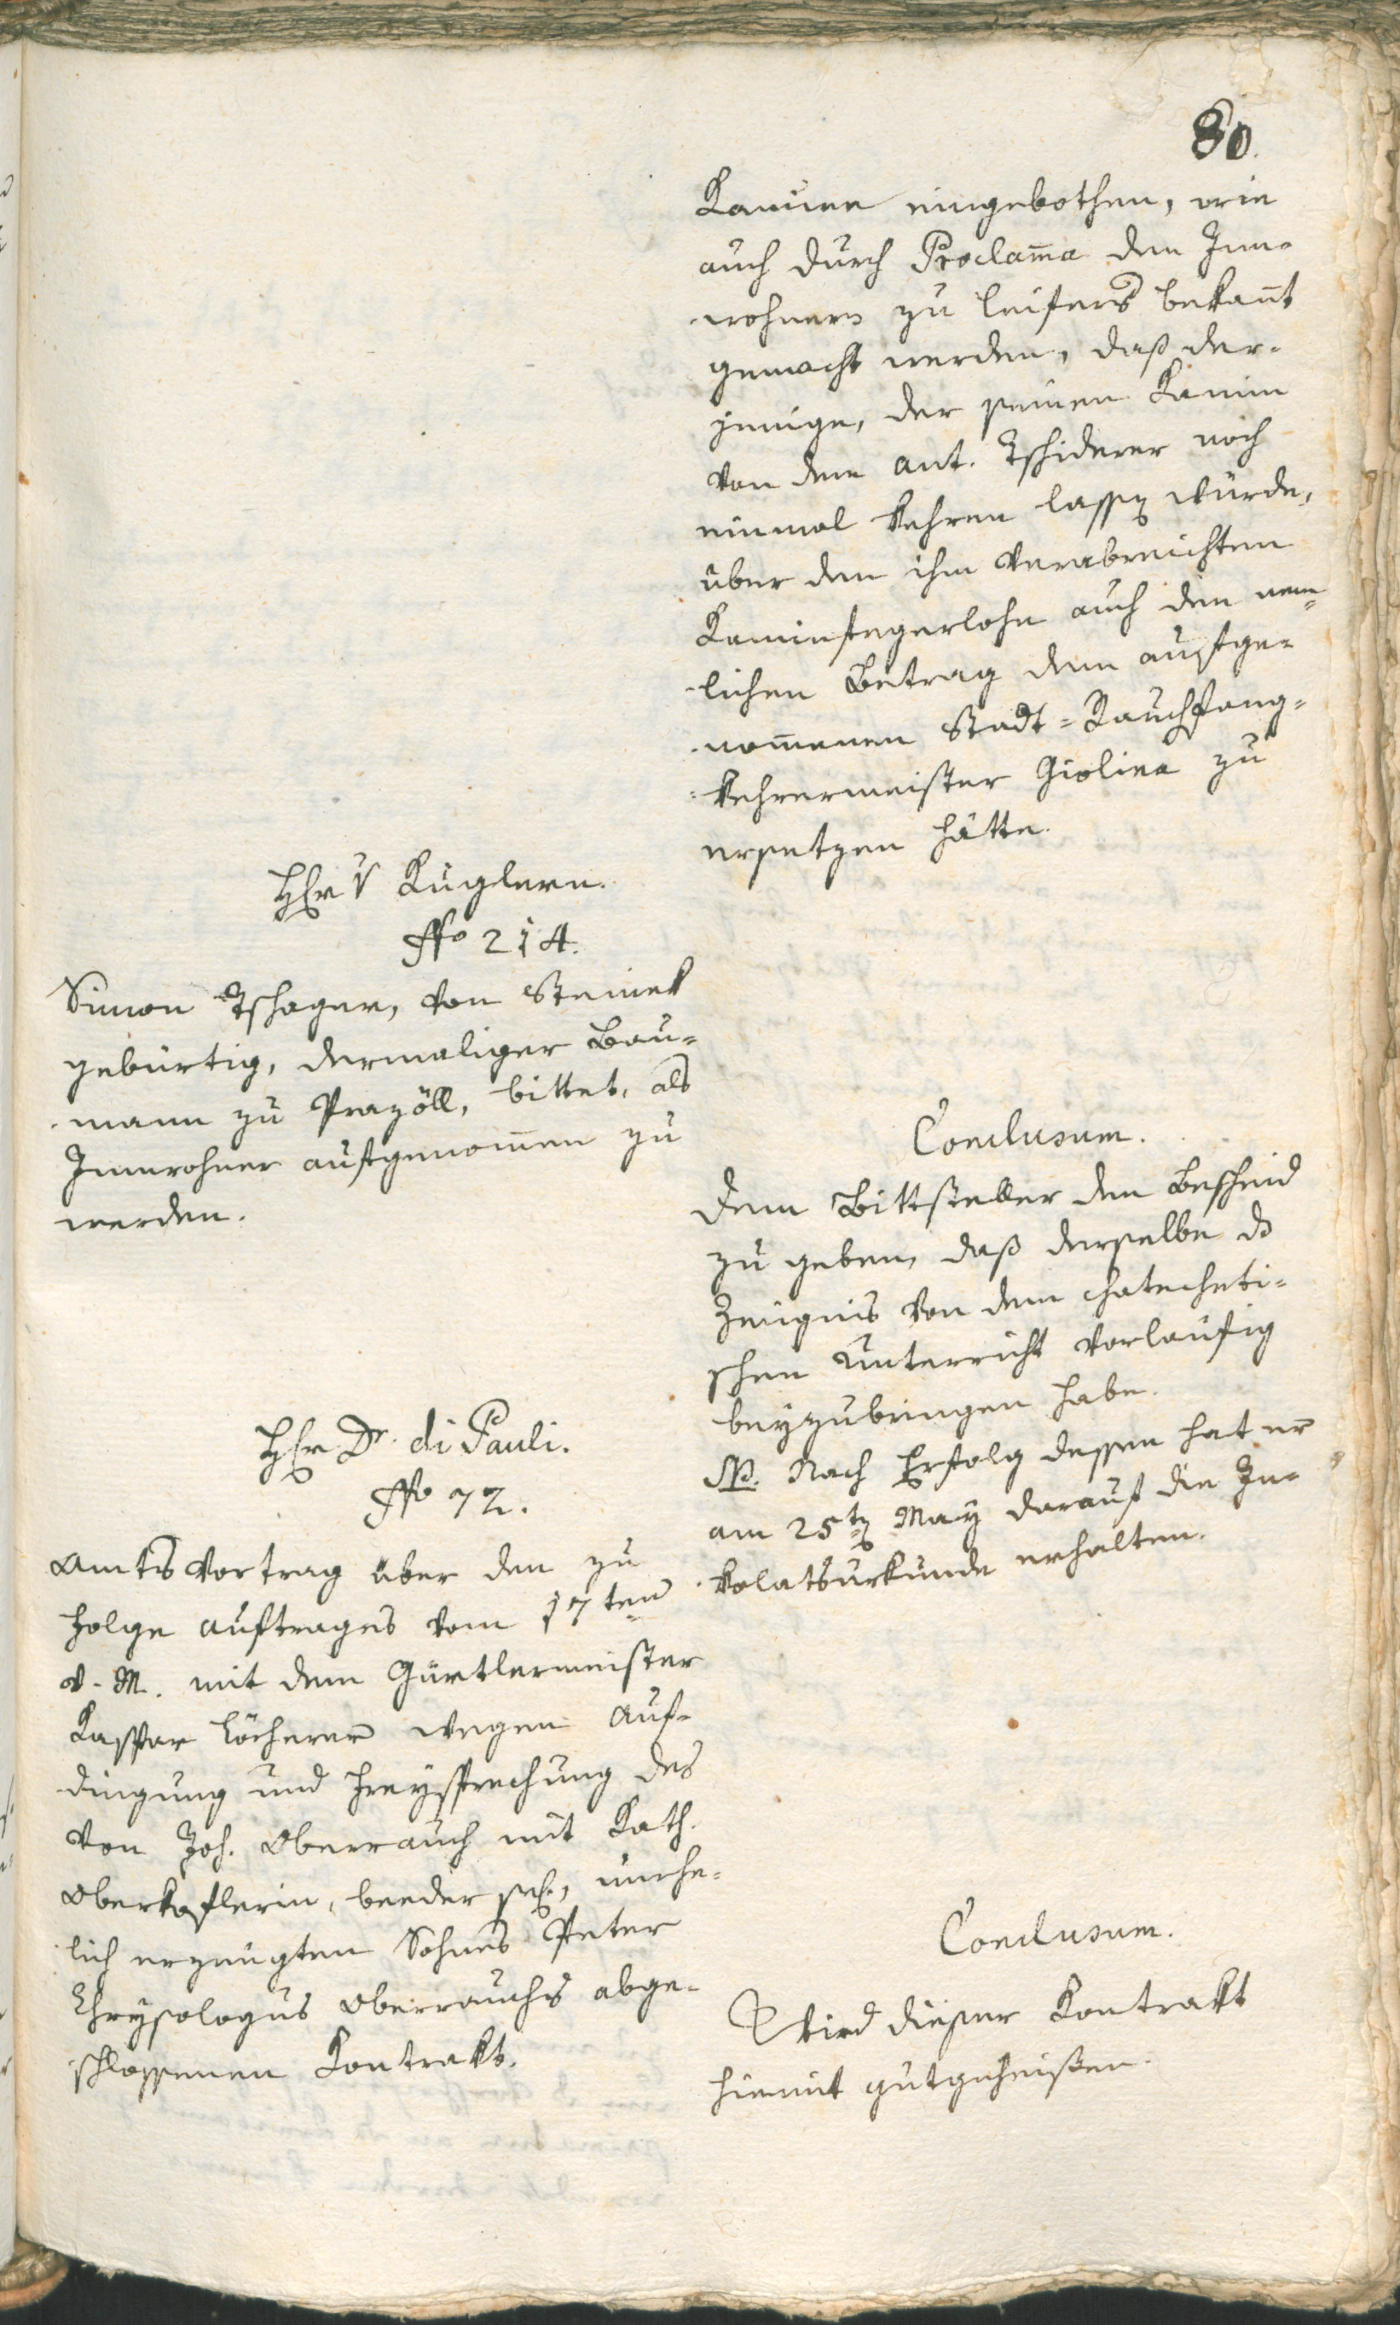 80.
Kamine eingebothen, wie
auch durch Proclama den Inn-
wohnern zu Leifers bekannt
gemacht werden, daß der-
jenige, der seinen Kamin
von dem Ant. Tschiderer noch
einmal kehren lassen würde,
über den ihm verabreichten
Kaminfegerlohn auch den nem-
lichen Betrag dem aufge-
nommenen Stadt-Rauchfang-
kehrermeister Giolina zu
ersetzen hätte.
Herr v Kuglern.
Ffo 214.
Simon Tschager, von Steinek
gebürtig, dermaliger Bau-
mann zu Prazöll, bittet, als
Innwohner aufgenommen zu
werden.
Conclusum.
Dem Bittsteller den Bescheid
zu geben, daß derselbe ds
Zeugnis von dem chatecheti-
schen Unterricht vorläufig
beyzubringen habe.
NB. Nach Erfolg dessen hat er
am 25ten May darauf die In-
kolatsurkunde erhalten.
Herr Dr. di Pauli.
Ffo 72.
Amtsvortrag über den zu
Folge Auftrages vom 17ten
v. M. mit dem Gürtlermeister
Kaspar Löcherer wegen Auf-
dingung und Freysprechung des
von Joh. Oberrauch mit Kath.
Oberkoflerin, beeder sel., unehe-
lich erzeugten Sohnes Peter
Chrysologus Oberrauchs abge-
schlossenen Kontrakt.
Conclusum.
Wird dieser Kontrakt
hiemit gutgeheißen.